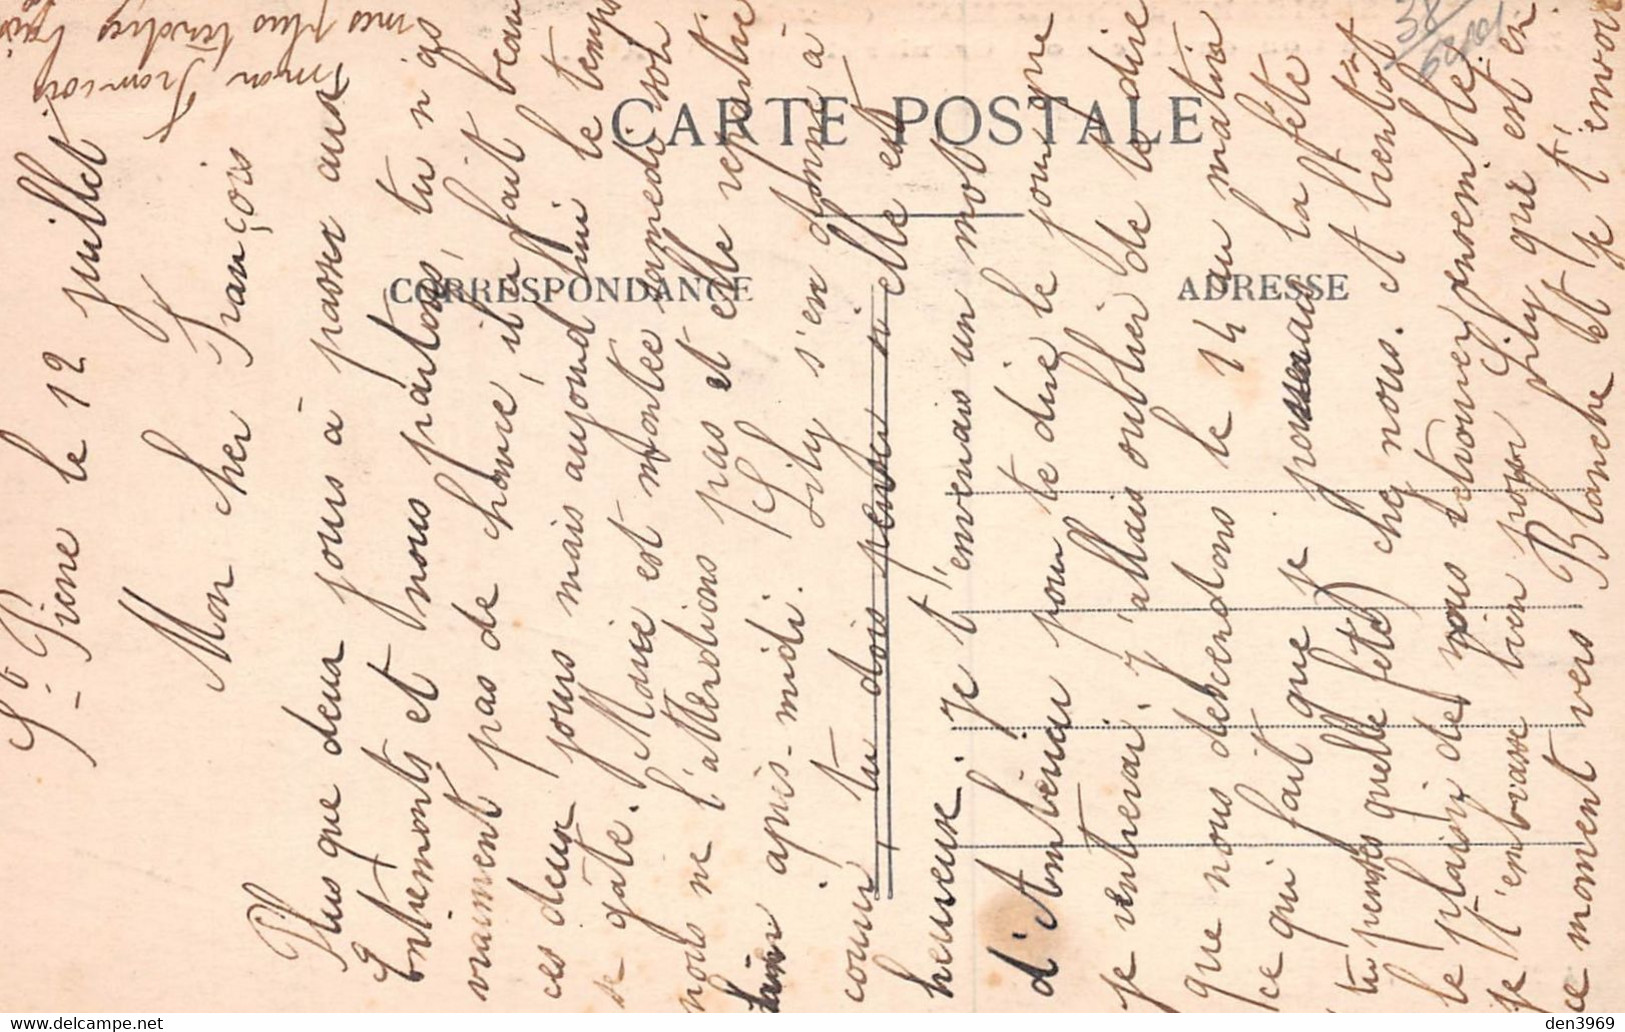 St Pierre le 12 juillet
Mon cher François
Plus que deux jours à passer aux
Entremonts et nous partons, tu n'as
vraiment pas de chance, il a fait beau
ces deux jours mais aujourd'hui le temps
se gâte. Marie est montée samedi soir
nous ne l'attendions pas et elle repartie
hier après-midi. Lily s'en donne à
cœur tu dois penser si elle est
heureuse. Je t'envenais un mot
d'Ambérieu pour te dire le jour que
je rentrerai, j'allais oublier de te dire
que nous descendons le 14 au matin
ce qui fait que je passerais la fête
tu penses quelle fête) chez nous. A bientôt
le plaisir de nous retrouver ensemble
Je t'embrasse bien pour Lily que est en
ce moment vers Blanche et je t'envoie
mon François
mes plus tendres
38
CARTE POSTALE
CORRESPONDANCE
ADRESSE
den3969